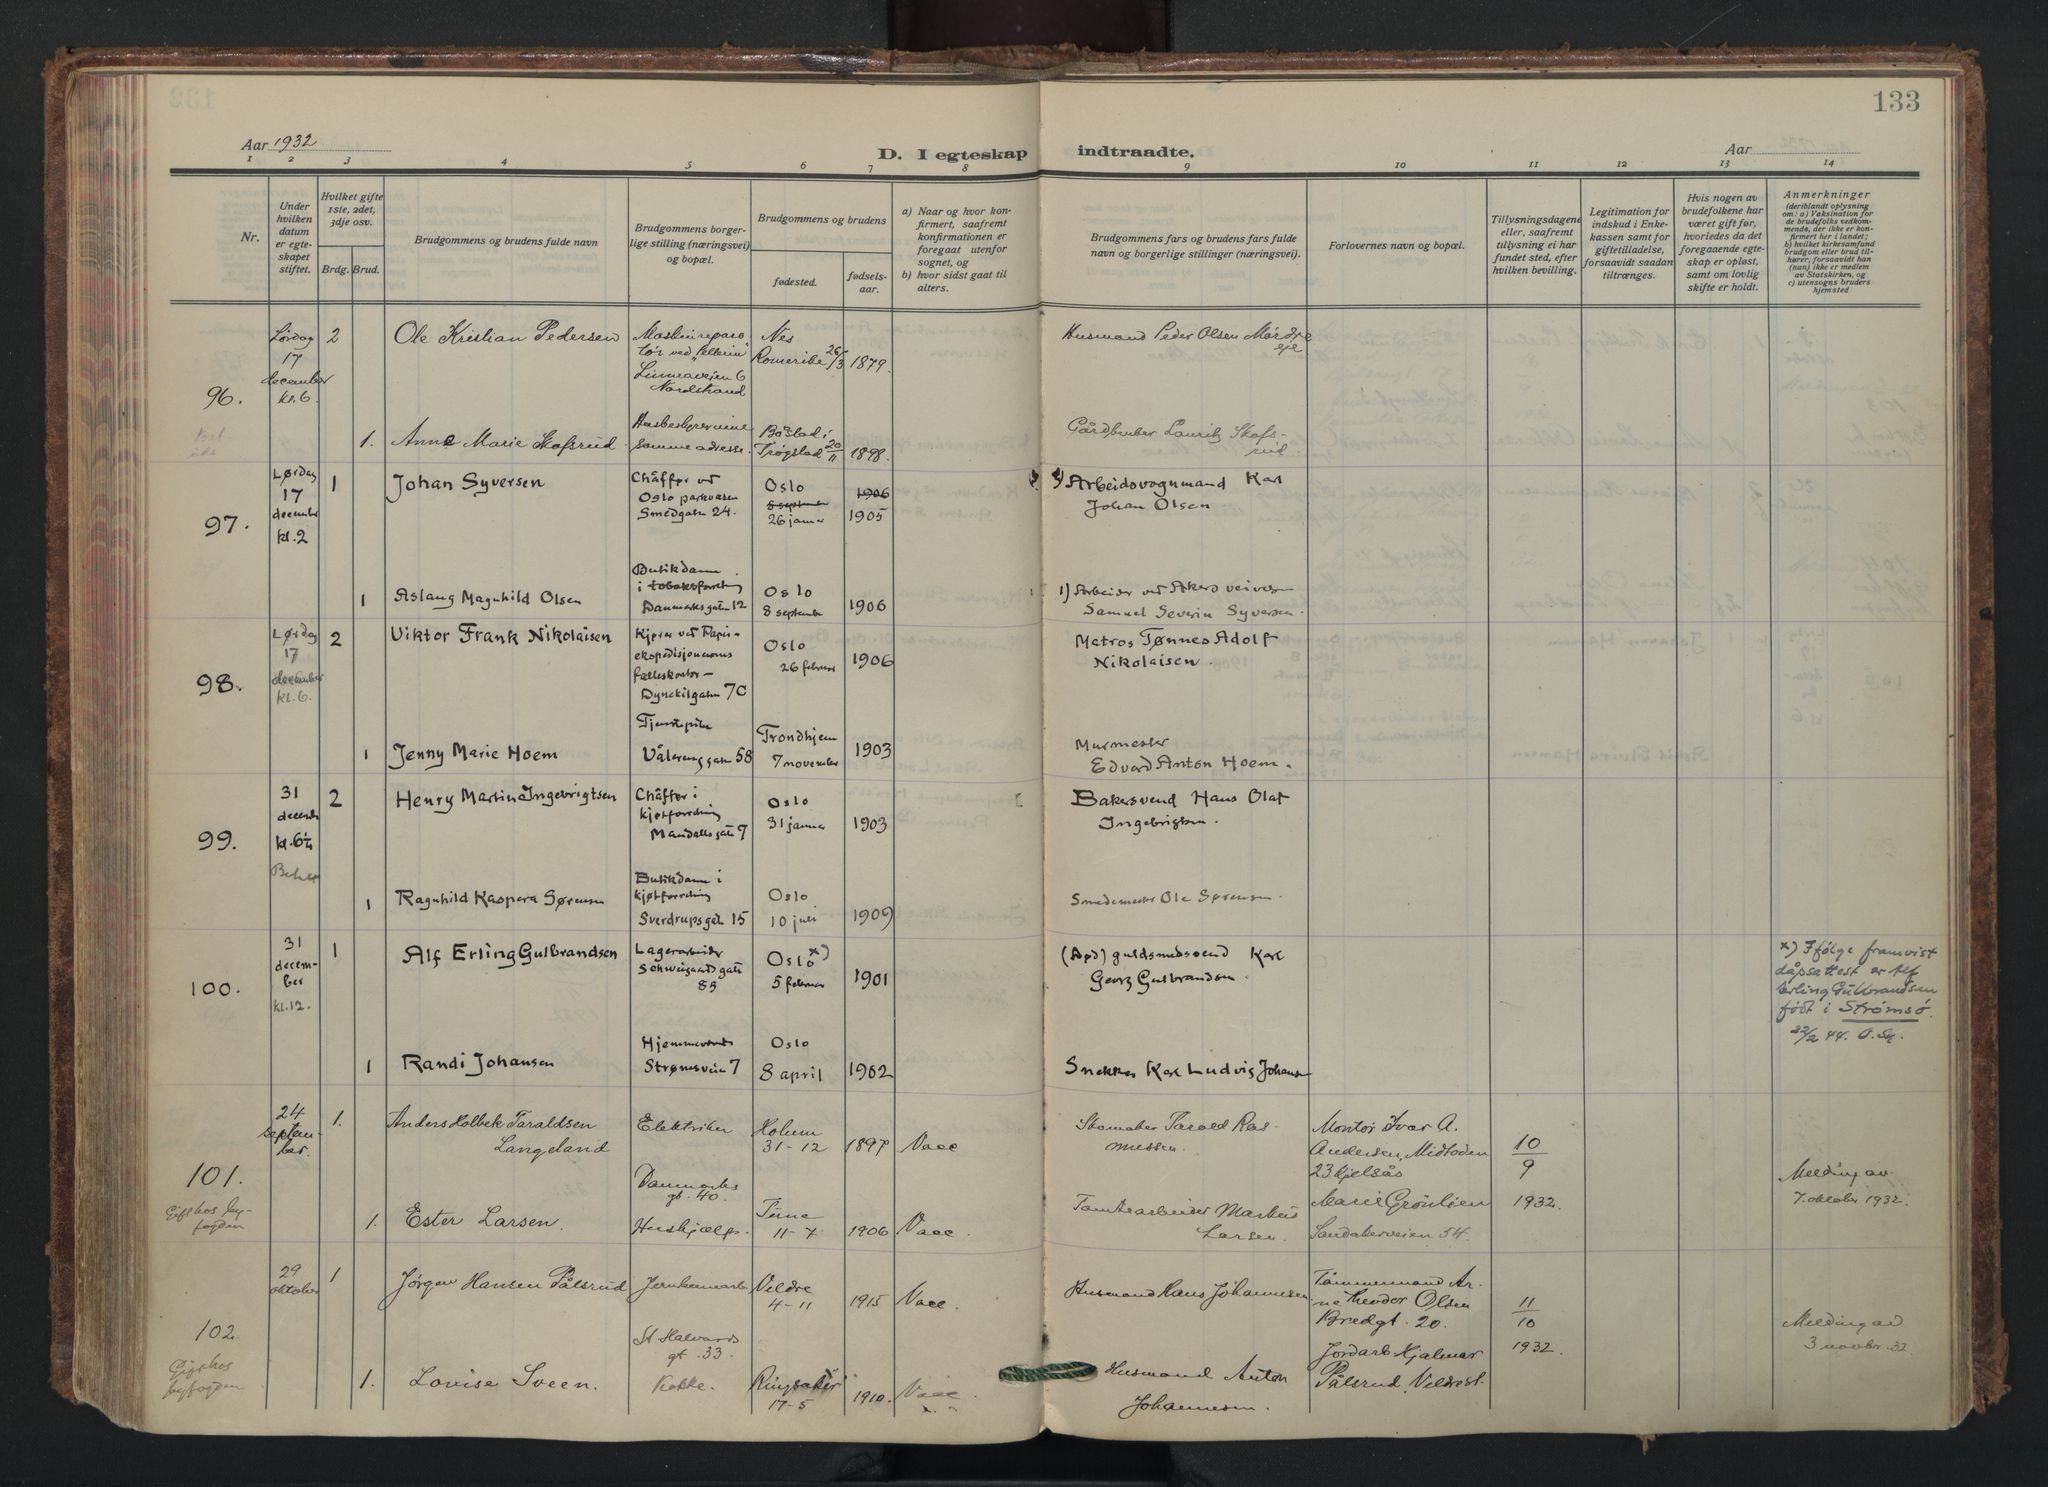 133
Aar 1932
D. I egteskap indtraadte.
Aar
1 2 3 4 5 6 7 8 9 10 11 12 13 14
Nr.
Under hvilken datum er egteskapet stiftet.
Hvilket gifte 1ste, 2det, 3dje osv.
Brdg. Brud.
Brudgommens og brudens fulde navn
Brudgommens borgerlige stilling (næringsvei) og bopæl.
Brudgommens og brudens
fødested.
fødselsaar.
a) Naar og hvor konfirmert, saafremt konfirmationen er foregaat utenfor sognet, og
b) hvor sidst gaat til alters.
Brudgommens fars og brudens fars fulde navn og borgerlige stillinger (næringsvei).
Forlovernes navn og bopæl.
Tillysningsdagene eller, saafremt tillysning ei har fundet sted, efter hvilken bevilling.
Legitimation for indskud i Enkekassen samt for giftetilladelse, forsaavidt saadan tiltrænges.
Hvis nogen av brudefolkene har været gift før, hvorledes da det foregaaende egteskap er opløst, samt om lovlig skifte er holdt.
Anmerkninger
(deriblandt oplysning om: a) Vaksination for de brudefolks vedkommende, der ikke er konfirmert her i landet; b) hvilket kirkesamfund brudgom eller brud tilhører, forsaavidt han (hun) ikke er medlem av Statskirken, og c) utensogns bruders hjemsted
96.
Lørdag 17 december kl. 6.
2
Ole Kristian Pedersen
Linneaveien 6 Nordstrand
Nes Romerike 26/3
1879
Husmand Peder Olsen Mørdre eje
1.
Anne Marie Skofsrud
samme adresse.
Båstad i Trøgstad 20/11
1898.
Gårdbruker Lauritz Skofsrud
97.
Lørdag 17 december kl. 2
1
Johan Syversen
Chåffør ved Oslo parkvæsen Smedgaten 24.
Oslo 8 september 26 januar
1906 1905
Arbeidsvognmand Karl Johan Olsen
1
Aslaug Magnhild Olsen
Butikdame i tobaksforretn Danmarksgaten 12
Oslo 8 september
1906
1) Arbeider ved Akers veivæsen Samuel Severin Syversen.
98.
Lørdag 17 december kl. 6.
2
Viktor Frank Nikolaisen
Dynekilgaten 7C
Oslo 26 februar
1906
Matros Tønnes Adolf Nikolaisen.
1
Jenny Marie Hoem
Tjenestepike Vålerenggaten 58
Trondhjem 7 november
1903
Murmester Edvard Anton Hoem.
99.
31 decembr kl. 6¼
2
Henry Martin Ingebrigtsen
Chåffør i kjøtforretning Mandalls gate 7
Oslo 31 januar
1903
Bakersvend Hans Olaf Ingebrigtsen.
1
Ragnhild Kaspara Sørensen
Butikdame i kjøtforretning Sverdrupsgaten 15
Oslo 10 juli
1909
Smedemester Ole Sørensen
100.
31 december kl. 12.
1
Alf Erling Gulbrandsen
Lagerarbeider Schweigaardsgate 89
Oslo x) 5 februar
1901
(Død) guldsmedsvend Karl Georg Gulbrandsen.
x) Ifølge framvist dåpsattest er Alf Erling Gulbrandsen født i Strømsø. 22/2 44.
1
Randi Johansen
Hjemmeværende Strømsveien 7
Oslo 8 april
1902
Snekker Karl Ludvig Johansen
101.
Gift hos byfogden
24 september.
1.
Anders Holbek Taraldsen Langeland
Elektriker Danmarks gt. 40.
Holum 31-12
1897
Vacc
Skomaker Tarald Rasmussen.
Montør Ivar A. Andersen, Midtoden 23 Kjelsås
10/9 1932.
Melding av 7. oktober 1932.
1.
Ester Larsen.
Hushjælp.
11-7
1906
Vacc.
Tomtearbeider Markus Larsen.
Marie Grønlien Sandakerveien 54.
102.
Gift hos byfogden
29 oktober
1
Jørgen Hansen Pålsrud
St Halvards gt. 33.
Veldre 4-11
1915
Vacc.
Husmand Hans Johannesen
Tømmermand Arne Theodor Olsen Bredgt. 20.
11/10 1932.
Melding av 3 novbr. 32.
1.
Lovise Sveen.
Kokke.
Ringsaker 17-5
1910.
Vacc
Husmand Anton Johannesen.
Jordarb Hjalmar Pålsrud, Veldre st.